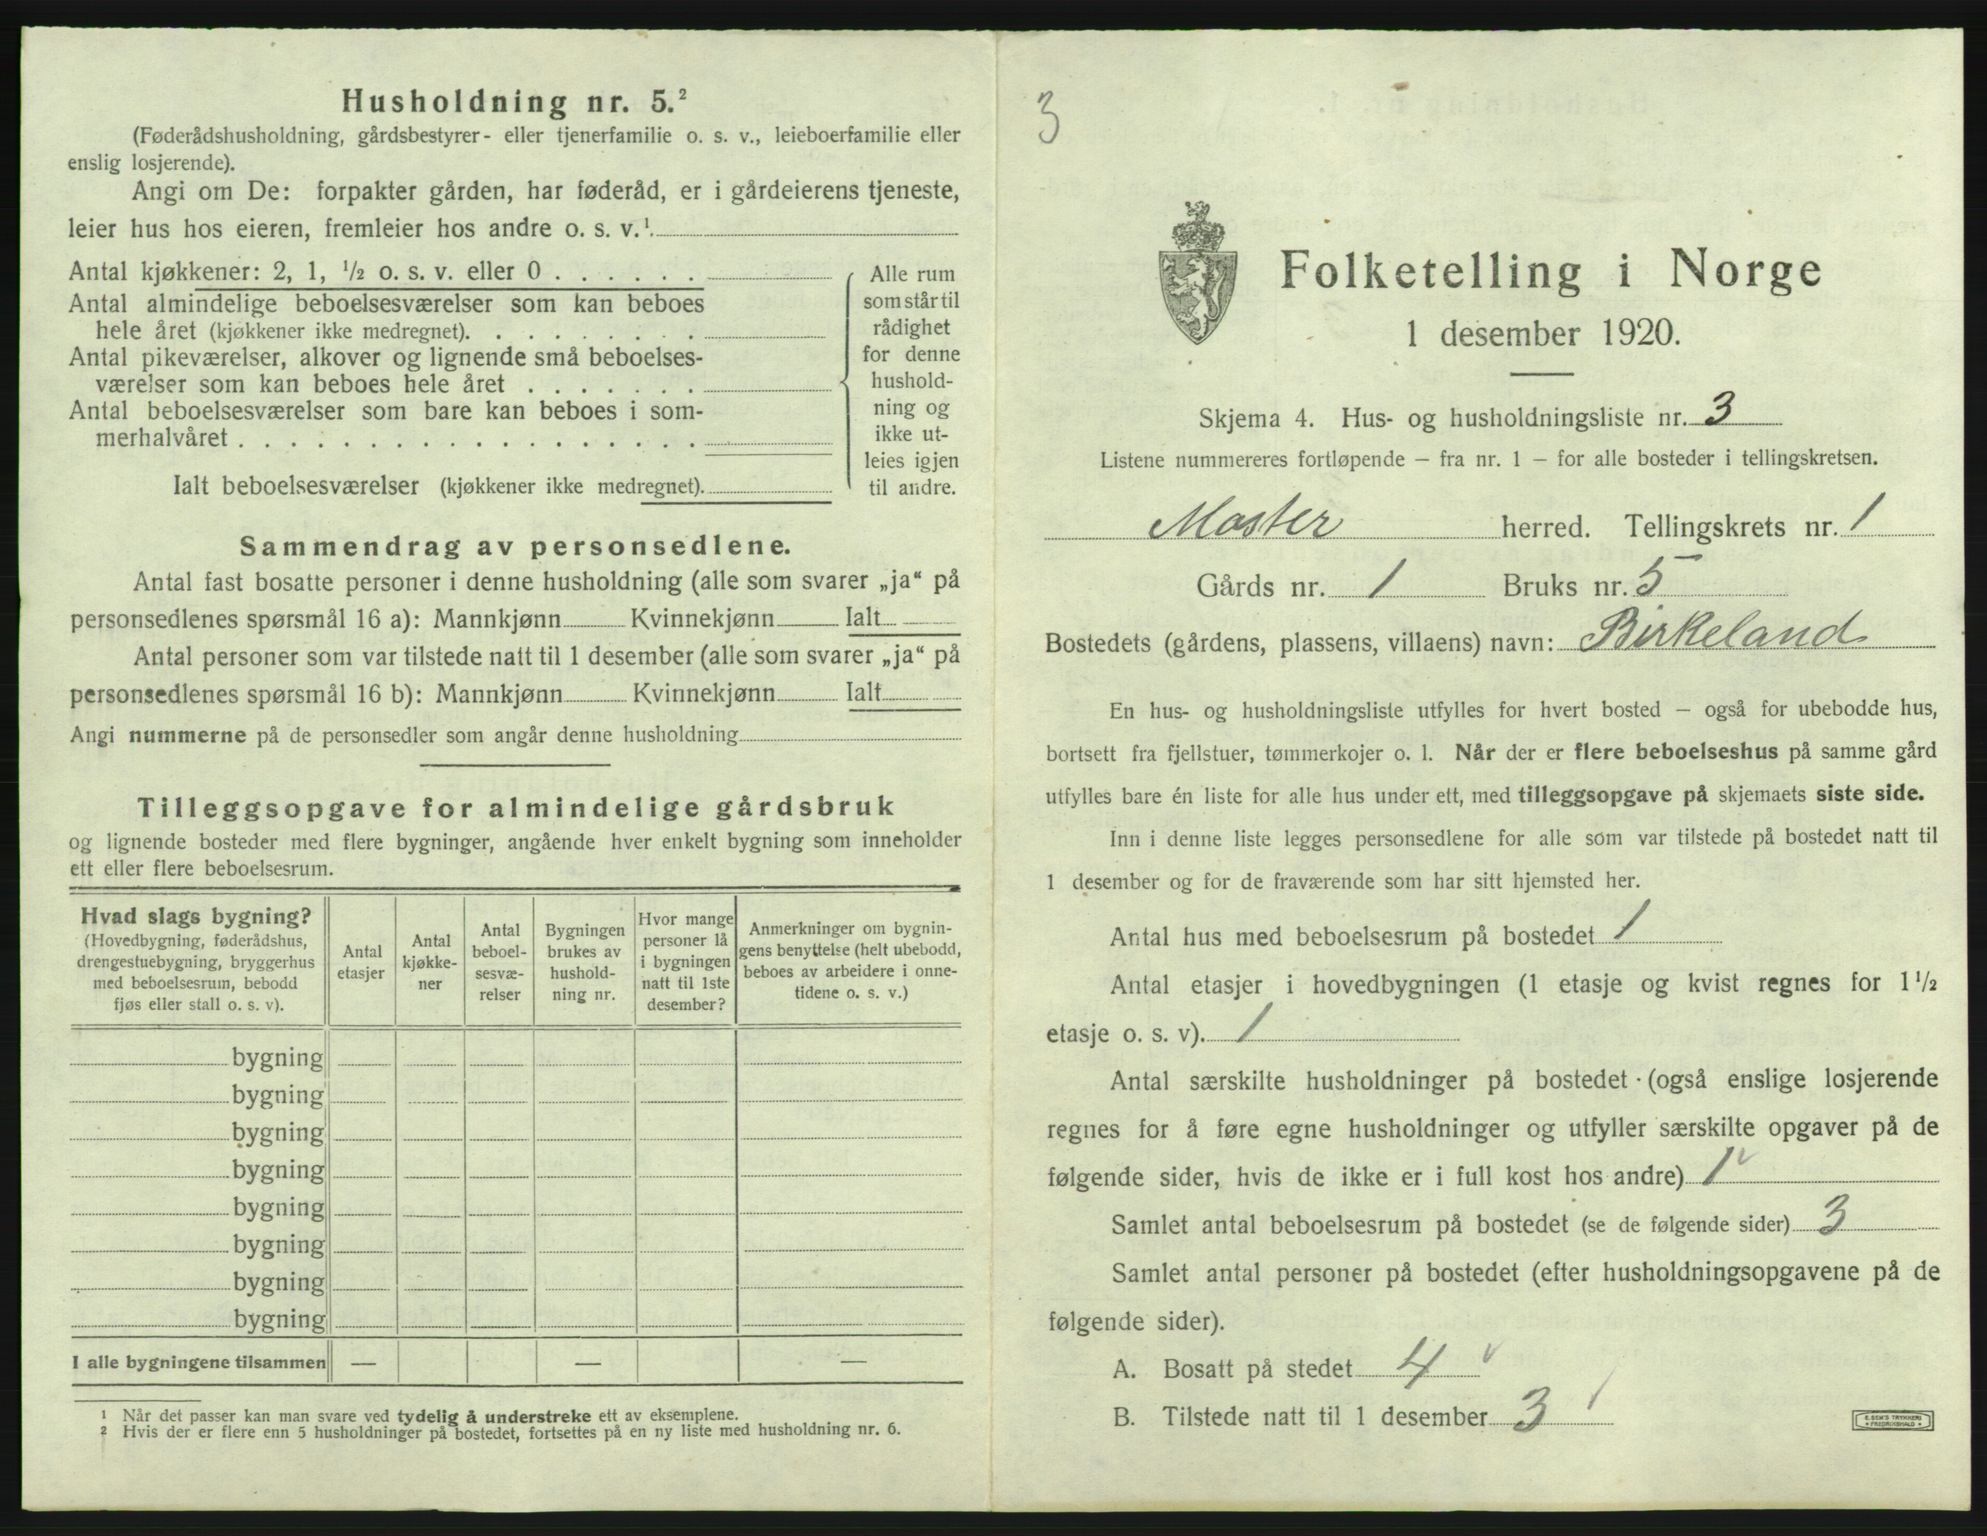 Husholdning nr. 5.²
(Føderådshusholdning, gårdsbestyrer- eller tjenerfamilie o. s. v., leieboerfamilie eller
enslig losjerende).
Angi om De: forpakter gården, har føderåd, er i gårdeierens tjeneste,
leier hus hos eieren, fremleier hos andre o. s. v.¹
Antal kjøkkener: 2, 1, ½ o. s. v. eller 0 . . . . . .
Antal almindelige beboelsesværelser som kan beboes
hele året (kjøkkener ikke medregnet). . . . . . . .
Antal pikeværelser, alkover og lignende små beboelses-
værelser som kan beboes hele året . . . . . . .
Antal beboelsesværelser som bare kan beboes i som-
merhalvåret . . . . . . . . . . . . . . . . . .
Ialt beboelsesværelser (kjøkkener ikke medregnet).
Alle rum
som står til
rådighet
for denne
hushold-
ning og
ikke ut-
leies igjen
til andre.
Sammendrag av personsedlene.
Antal fast bosatte personer i denne husholdning (alle som svarer „ja“ på
personsedlenes spørsmål 16 a): Mannkjønn Kvinnekjønn Ialt
Antal personer som var tilstede natt til 1 desember (alle som svarer „ja“ på
personsedlenes spørsmål 16 b): Mannkjønn Kvinnekjønn Ialt
Angi nummerne på de personsedler som angår denne husholdning
Tilleggsopgave for almindelige gårdsbruk
og lignende bosteder med flere bygninger, angående hver enkelt bygning som inneholder
ett eller flere beboelsesrum.
Hvad slags bygning?
(Hovedbygning, føderådshus,
drengestuebygning, bryggerhus
med beboelsesrum, bebodd
fjøs eller stall o. s. v).
Antal
etasjer
Antal
kjøkke-
ner
Antal
beboel-
sesvæ-
relser
Bygningen
brukes av
hushold-
ning nr.
Hvor mange
personer lå
i bygningen
natt til 1ste
desember?
Anmerkninger om bygnin-
gens benyttelse (helt ubebodd,
beboes av arbeidere i onne-
tidene o. s. v.)
bygning
bygning
bygning
bygning
bygning
bygning
bygning
bygning
I alle bygningene tilsammen — — —
¹ Når det passer kan man svare ved tydelig å understreke ett av eksemplene.
² Hvis der er flere enn 5 husholdninger på bostedet, fortsettes på en ny liste med husholdning nr. 6.
3
Folketelling i Norge
1 desember 1920.
Skjema 4. Hus- og husholdningsliste nr. 3
Listene nummereres fortløpende – fra nr. 1 – for alle bosteder i tellingskretsen.
Moster herred. Tellingskrets nr. 1
Gårds nr. 1 Bruks nr. 5
Bostedets (gårdens, plassens, villaens) navn: Birkeland
En hus- og husholdningsliste utfylles for hvert bosted – også for ubebodde hus,
bortsett fra fjellstuer, tømmerkojer o. l. Når der er flere beboelseshus på samme gård
utfylles bare én liste for alle hus under ett, med tilleggsopgave på skjemaets siste side.
Inn i denne liste legges personsedlene for alle som var tilstede på bostedet natt til
1 desember og for de fraværende som har sitt hjemsted her.
Antal hus med beboelsesrum på bostedet 1
Antal etasjer i hovedbygningen (1 etasje og kvist regnes for 1½
etasje o. s. v). 1
Antal særskilte husholdninger på bostedet (også enslige losjerende
regnes for å føre egne husholdninger og utfyller særskilte opgaver på de
følgende sider, hvis de ikke er i full kost hos andre) 1
Samlet antal beboelsesrum på bostedet (se de følgende sider) 3
Samlet antal personer på bostedet (efter husholdningsopgavene på de
følgende sider).
A. Bosatt på stedet 4
B. Tilstede natt til 1 desember 3
E. SEM'S TRYKKERI
FREDRIKSHALD